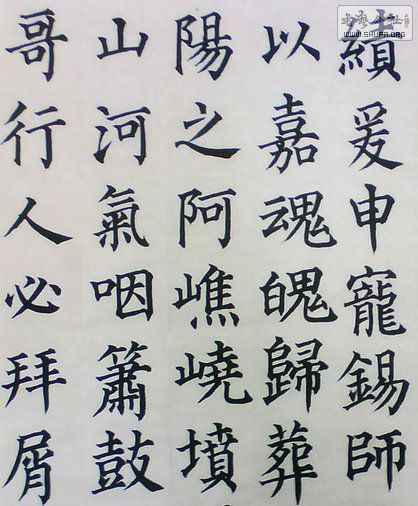 績爰申寵錫師
以嘉魂魄歸葬
陽之阿嶕嶢墳
山河氣咽簫鼓
哥行人必拜屑
WWW.SHUFA.ORG